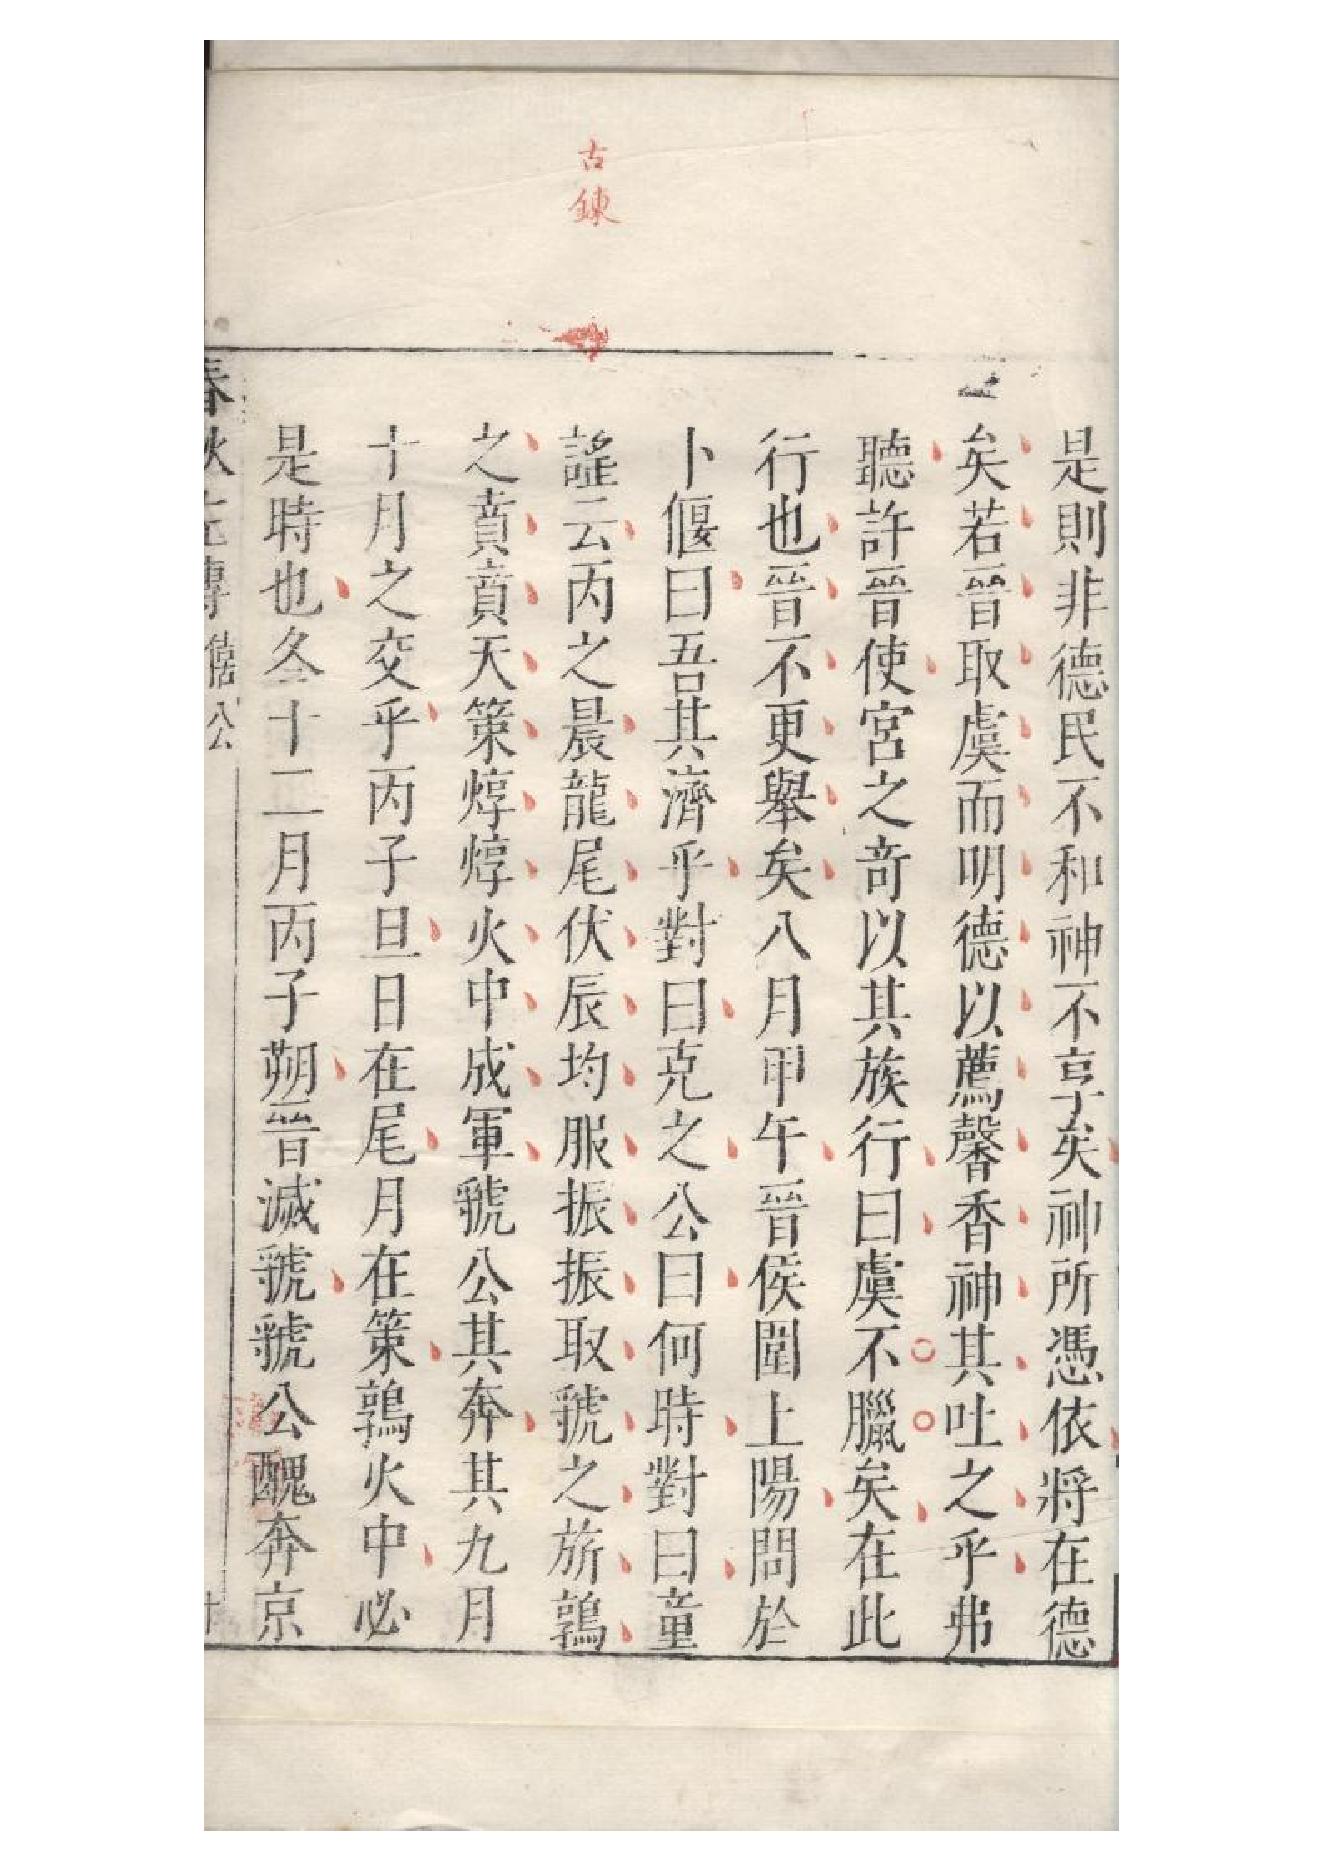 古鍊
是則非德民不和神不享矣神所憑依將在德
矣若晉取虞而明德以薦馨香神其吐之乎弗
聽許晉使宮之奇以其族行曰虞不臘矣在此
行也晉不更舉矣八月甲午晉侯圍上陽問於
卜偃曰吾其濟乎對曰克之公曰何時對曰童
謠云丙之晨龍尾伏辰均服振振取虢之旂鶉
之賁賁天策焞焞火中成軍虢公其奔其九月
十月之交乎丙子旦日在尾月在策鶉火中必
是時也冬十二月丙子朔晉滅虢虢公醜奔京
春秋左傳 僖公 十